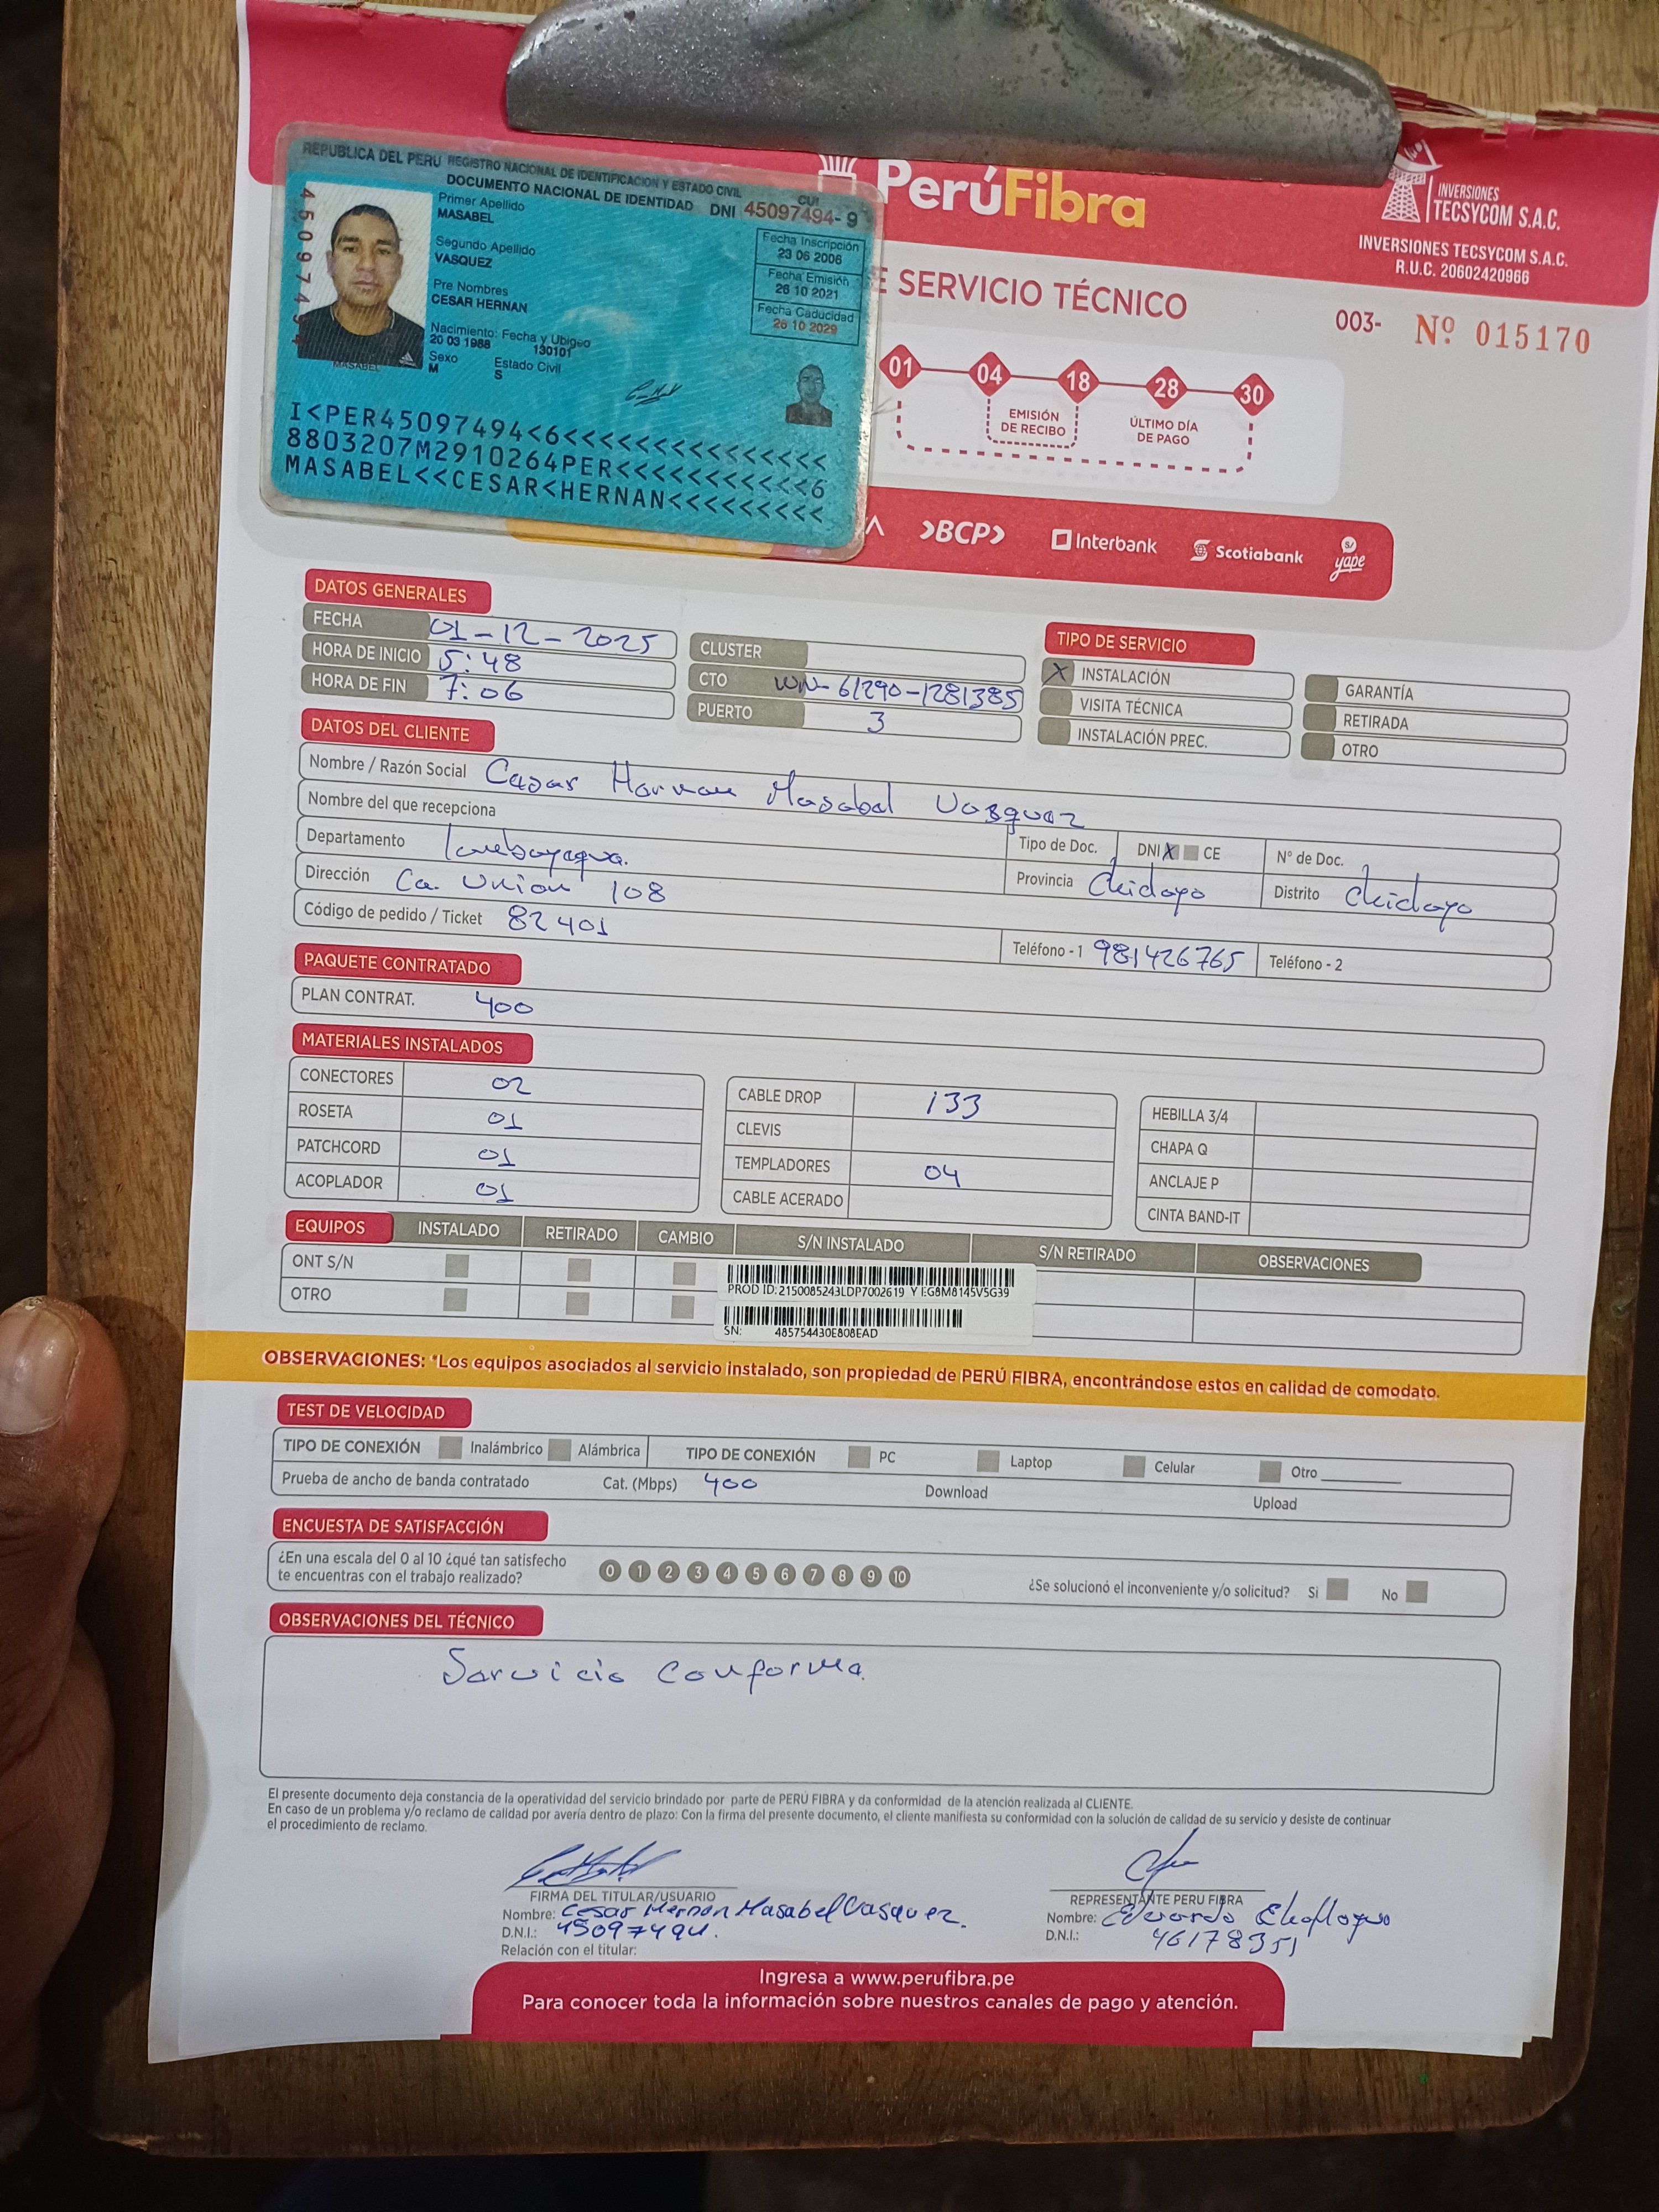 REPUBLICA DEL PERÚ REGISTRO NACIONAL DE IDENTIFICACION Y ESTADO CIVIL
DOCUMENTO NACIONAL DE IDENTIDAD DNI 45097494-9
CUI
45097494
Primer Apellido
MASABEL
Segundo Apellido
VASQUEZ
Pre Nombres
CESAR HERNAN
Nacimiento: Fecha y Ubigeo
20 03 1988 130101
Sexo Estado Civil
M S
Fecha Inscripción
23 06 2006
Fecha Emisión
26 10 2021
Fecha Caducidad
26 10 2029
MASABEL
I<PER45097494<6<<<<<<<<<<<<<<<
8803207M2910264PER<<<<<<<<<<<6
MASABEL<<CESAR<HERNAN<<<<<<<<<
PerúFibra
INVERSIONES
TECSYCOM S.A.C.
INVERSIONES TECSYCOM S.A.C.
R.U.C. 20602420966
E SERVICIO TÉCNICO
003- Nº 015170
01 04 18 28 30
EMISIÓN
DE RECIBO
ÚLTIMO DÍA
DE PAGO
BCP Interbank Scotiabank S/ yape
DATOS GENERALES
FECHA 01-12-2025
HORA DE INICIO 5:48
HORA DE FIN 7:06
CLUSTER
CTO WN-61290-1281385
PUERTO 3
TIPO DE SERVICIO
X INSTALACIÓN
VISITA TÉCNICA
INSTALACIÓN PREC.
GARANTÍA
RETIRADA
OTRO
DATOS DEL CLIENTE
Nombre / Razón Social Cesar Hernan Masabel Vasquez
Nombre del que recepciona
Tipo de Doc. DNI X CE Nº de Doc.
Departamento Lambayeque.
Provincia Chiclayo Distrito Chiclayo
Dirección Ca. Union 108
Código de pedido / Ticket 82401
Teléfono - 1 981426765 Teléfono - 2
PAQUETE CONTRATADO
PLAN CONTRAT. 400
MATERIALES INSTALADOS
CONECTORES 02
ROSETA 01
PATCHCORD 01
ACOPLADOR 01
CABLE DROP 133
CLEVIS
TEMPLADORES 04
CABLE ACERADO
HEBILLA 3/4
CHAPA Q
ANCLAJE P
CINTA BAND-IT
EQUIPOS INSTALADO RETIRADO CAMBIO S/N INSTALADO S/N RETIRADO OBSERVACIONES
ONT S/N
OTRO
PROD ID:2150085243LDP7002619 Y EG8M8145V5G39
SN: 485754430E808EAD
OBSERVACIONES: *Los equipos asociados al servicio instalado, son propiedad de PERÚ FIBRA, encontrándose estos en calidad de comodato.
TEST DE VELOCIDAD
TIPO DE CONEXIÓN Inalámbrico Alámbrica TIPO DE CONEXIÓN PC Laptop Celular Otro
Prueba de ancho de banda contratado Cat. (Mbps) 400 Download Upload
ENCUESTA DE SATISFACCIÓN
¿En una escala del 0 al 10 ¿qué tan satisfecho
te encuentras con el trabajo realizado?
0 1 2 3 4 5 6 7 8 9 10
¿Se solucionó el inconveniente y/o solicitud? Si No
OBSERVACIONES DEL TÉCNICO
Servicio Conforme.
El presente documento deja constancia de la operatividad del servicio brindado por parte de PERÚ FIBRA y da conformidad de la atención realizada al CLIENTE.
En caso de un problema y/o reclamo de calidad por avería dentro de plazo: Con la firma del presente documento, el cliente manifiesta su conformidad con la solución de calidad de su servicio y desiste de continuar
el procedimiento de reclamo.
FIRMA DEL TITULAR/USUARIO
Nombre: Cesar Hernan Masabel Vasquez.
D.N.I.: 45097494.
Relación con el titular:
REPRESENTANTE PERU FIBRA
Nombre: Eduardo
D.N.I.: 46178351
Ingresa a www.perufibra.pe
Para conocer toda la información sobre nuestros canales de pago y atención.